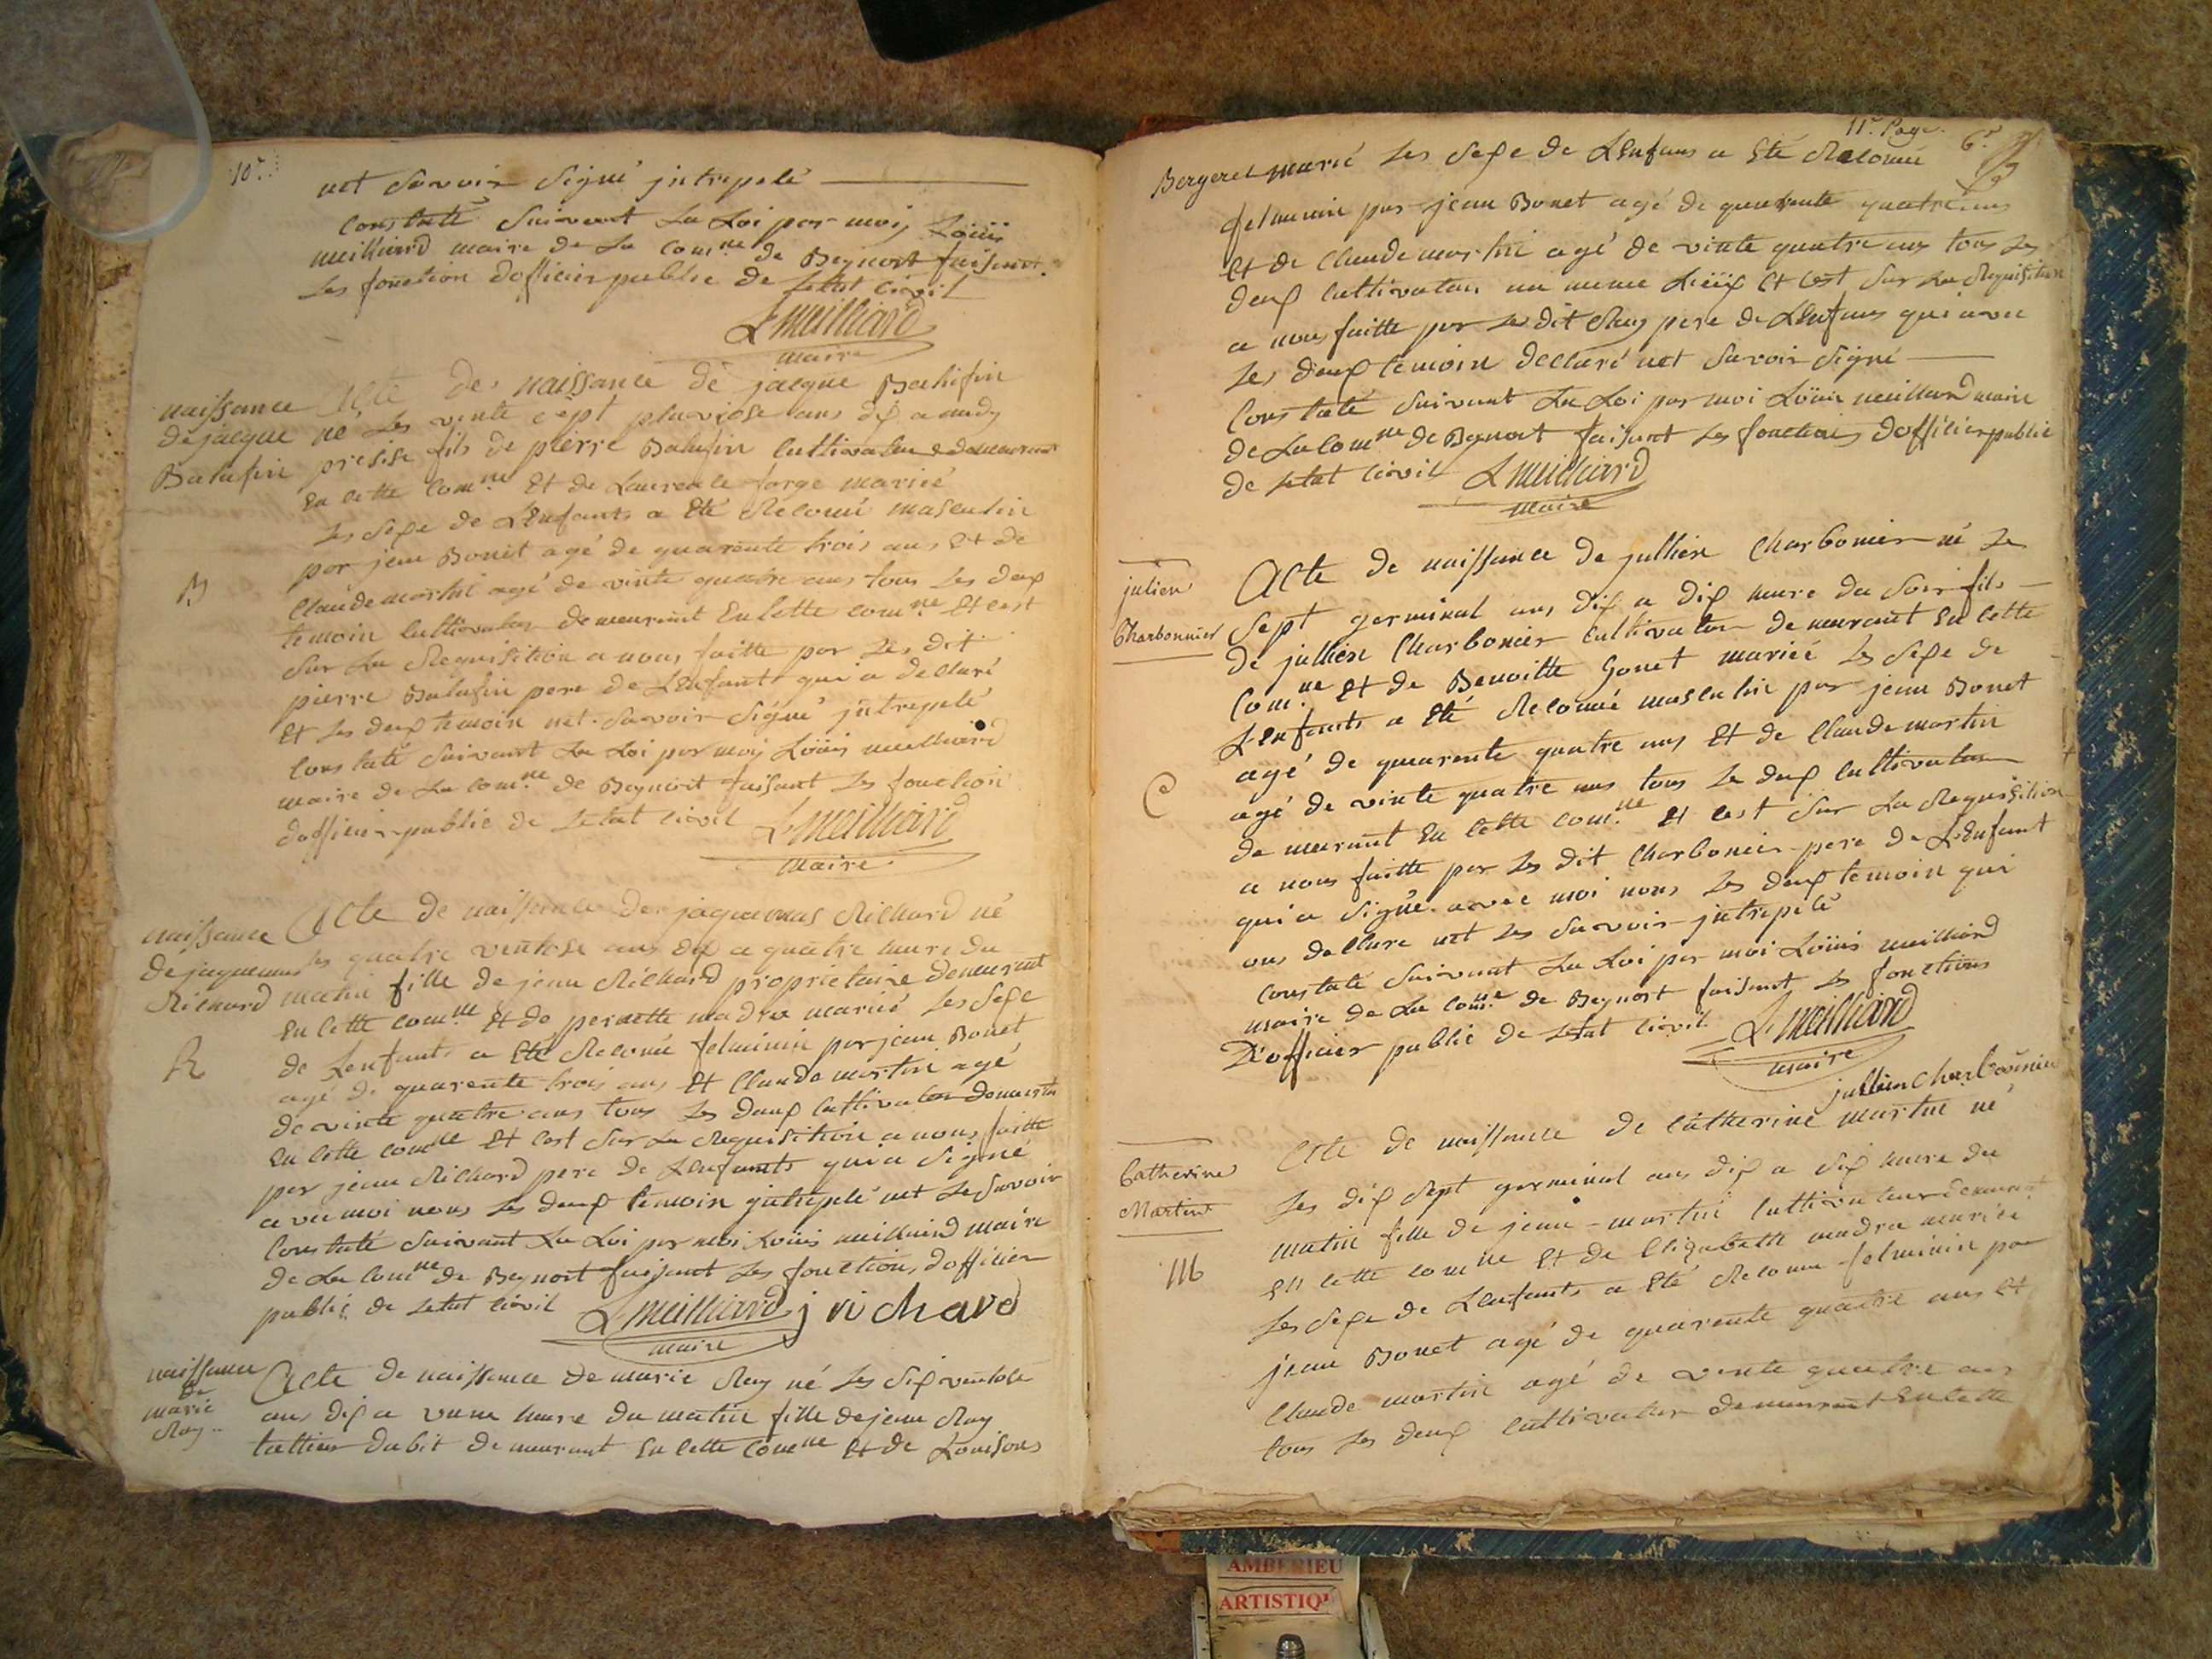 10.e
net Savoir Signé jntrepelé
Constaté Suivant La Loi par moij Loüis
meilliard maire de La Com.ne de Beynost faisant
Les fonction dofficier public de Letat Civil
L meilliard
maire
naissance
de jacque
Balufin
Acte de naissance de jacque Balufin
né Les vinte sept pluviose ans dix a midy
presise fils de pierre Balufin Cultivateur demeurant
En Cette Com.ne Et de Laurence forge mariié
Les Sexe de LEnfants a Eté Reconu masculin
par jean Bonet agé de quarente trois ans Et de
B
Claude martin agé de vinte quatre ans tous Les deux
temoin Cultivateur demeurant En Cette com.ne Et Cest
Sur La Requisition a nous faitte par Les dit
pierre Balufin pere de LEnfants qui a declaré
Et Les deux temoin net Savoir Signé jntrepelé
Constaté Suivant La Loi par moij Loüis meilliard
maire de La com.ne de Beynost faisant Les fonction
dofficier public de Letat Civil L meilliard
maire
naissance
de jaquemas
Richard
Acte de naissance de jaquemas Richard né
Les quatre ventose ans dix a quatre heure du
matin fille de jean Richard proprietaire demeurant
En Cette com.ne Et de pernette madra mariié Les Sexe
de Lenfants a Eté Reconu felminin par jean Bonet
R
agé de quarente trois ans Et Claude martin agé
de vinte quatre ans tous Les deux Cultivateur demeurant
En Cette com.ne Et Cest Sur La Requisition a nous faitte
par jean Richard pere de LEnfants qui a Signé
avec moi nous Les deux temoin jntrepelé net Le Savoir
Constaté Suivant La Loi par moi Loüis meilliard maire
de La Com.ne de Beynost faisant Les fonctions dofficier
public de Letat Civil L meilliard j richard
maire
naissance
de
marie
Ray
Acte de naissance de marie Ray né Les Six ventose
ans dix a vune heure du matin fille de jean Ray
tallieur dabit demeurant En Cette Com.ne Et de Louisons
11.e Page. 6.e
Bergeret marié Les Sexe de LEnfans a Eté Reconu
felminin par jean Bonet agé de quarente quatre ans
Et de Claude martin agé de vinte quatre ans tous Les
deux Cultivateur au meme Lieüx Et Cest Sur La Requisition
a nous faitte par Le dit Ray pere de LEnfans qui avec
Les deux temoin declaré net Savoir Signé
Constaté Suivant La Loi par moi Loüis meilliard maire
de La Com.ne de Beynost faisant Les fonctions dofficier public
de Letat Civil L meilliard
maire
julien
Charbonnier
Acte de naissance de jullien Charbonier né Le
Sept germinal ans dix a dix heure du Soir fils
de jullien Charbonier Cultivateur demeurant En Cette
Com.ne Et de Benoitte Gonet mariié Les Sexe de
LEnfants a Eté Reconué masculin par jean Bonet
agé de quarente quatre ans Et de Claude martin
C
agé de vinte quatre ans tous Le deux Cultivateur
demeurant En Cette com.ne Et Cest Sur La Requisition
a nous faitte par Les dit Charbonier pere de LEnfant
qui a Signé avec moi nons Les deux temoin qui
ons declare net Les Savoir jntrepelé
Constaté Suivant La Loi par moi Loüis meilliard
maire de La Com.ne de Beynost faisant Les fonctions
D'officier public de Letat Civil L meilliard
maire
jullien Charbonnier
Catherine
Martin
Acte de naissance de Catherine martin né
Les dix Sept germinal ans dix a Six heure du
matin fille de jean martin Cultivateur demeurant
M
En Cette com ne Et de Elizabeth madra mariée
Les Sexe de LEnfants a Eté Reconu felminin par
jean Bonet agé de quarente quatre ans Et
Claude martin agé de vinte quatre ans
tous Les deux Cultivateur demeurant En Cette
AMBERIEU
ARTISTIQ